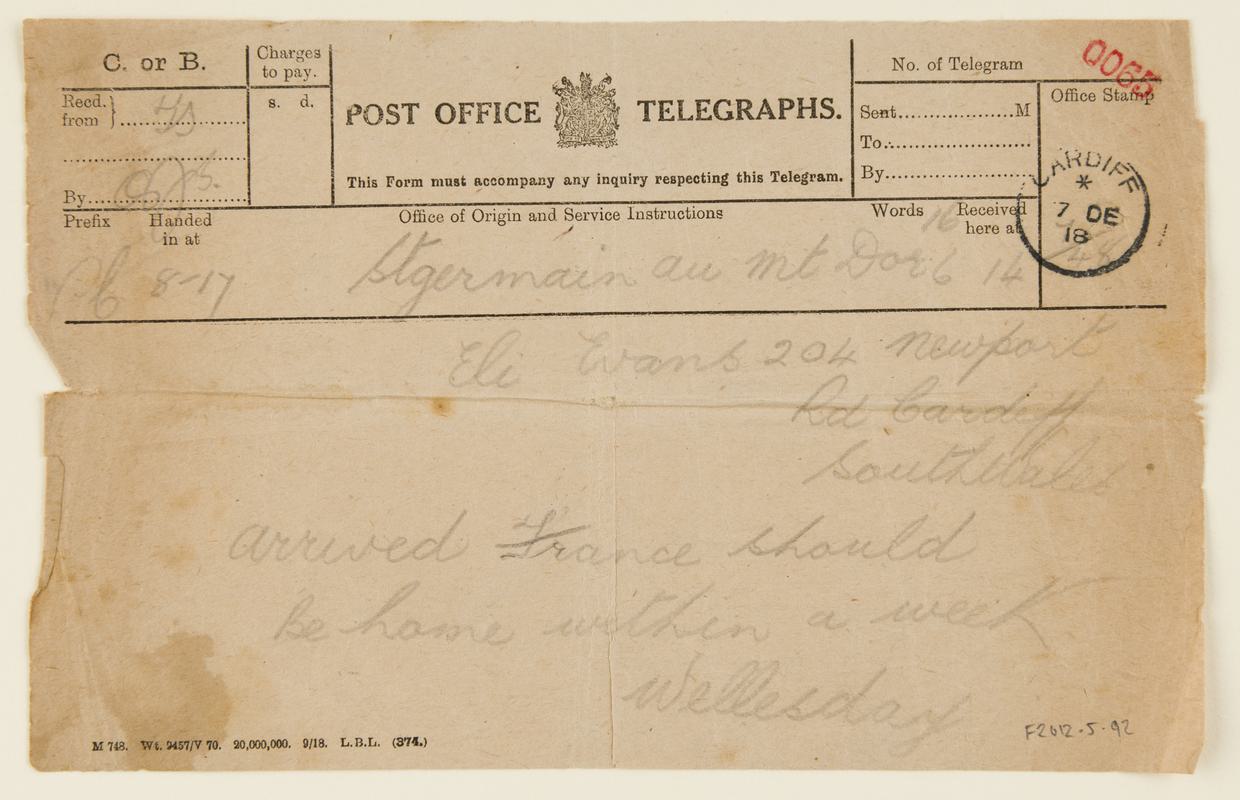 C. or B.
Charges
to pay.
s. d.
Recd.
from
By
POST OFFICE TELEGRAPHS.
This Form must accompany any inquiry respecting this Telegram.
No. of Telegram
0065
Sent M
To
By
Office Stamp
CARDIFF
*
7 DE
18
Prefix Handed
in at
Office of Origin and Service Instructions
Words Received
here at
16
8-17 Stgermain au mt Dor 6 14 48
Eli Evans 204 Newport
Rd Cardiff
SouthWales
arrived France should
be home within a week
Wellesday
M 748. Wt. 9457/V 70. 20,000,000. 9/18. L.B.L. (374.)
F2012.5.92